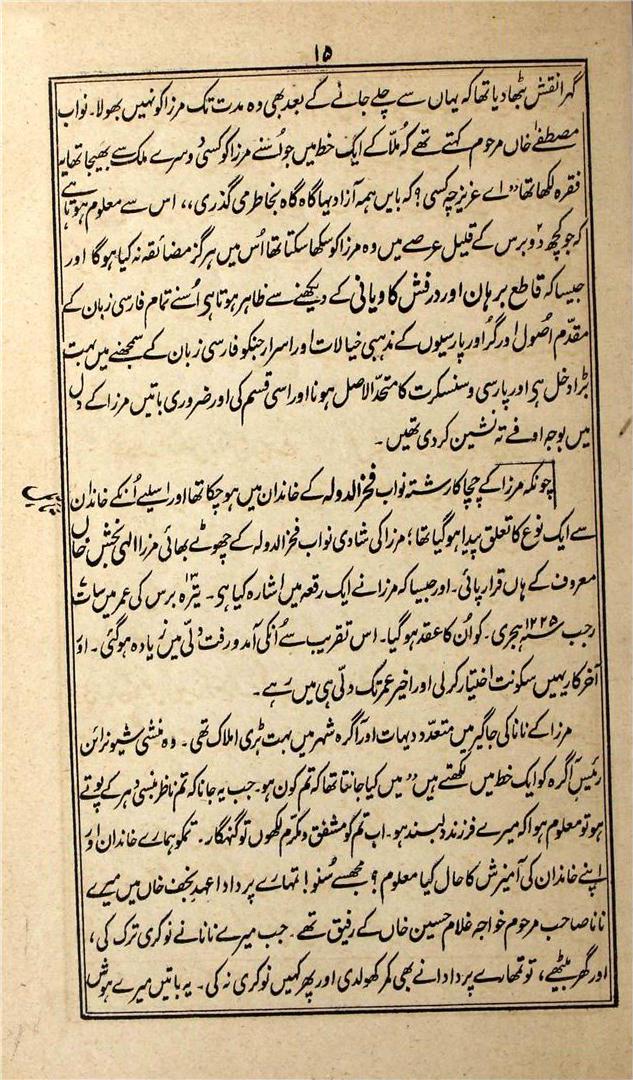 ۱۵
گہرا نقش بٹھا دیا تھا کہ یہاں سے چلے جانے کے بعد بھی وہ مدت تک مرزا کو نہیں بھولا۔ نواب
مصطفےٰ خاں مرحوم کہتے تھے کہ مُلّا کے ایک خط میں جو اُسنے مرزا کو کسی دوسرے ملک سے بھیجا تھا یہ
فقرہ لکھا تھا ”اے عزیز چہ کسی؟ کہ بایں ہمہ آزادیہا گاہ گاہ بخاطر می گذری،، اس سے معلوم ہوتا ہے
کہ جو کچھ دو۲ برس کے قلیل عرصے میں وہ مرزا کو سکھا سکتا تھا اُس میں ہرگز مضائقہ نہ کیا ہوگا اور
جیسا کہ قاطع برہان اور درفش کاویانی کے دیکھنے سے ظاہر ہوتا ہی اُسنے تمام فارسی زبان کے
مقدّم اُصول اور گُر اور پارسیوں کے مذہبی خیالات اور اسرار جنکو فارسی زبان کے سمجھنے میں بہت
بڑا دخل ہی اور پارسی و سنسکرت کا متحدّ الاصل ہونا اور اسی قسم کی اور ضروری باتیں مرزا کے دل
میں بوجہ اوفےٰ تہ نشین کر دی تھیں۔
چونکہ مرزا کے چچا کا رشتہ نواب فخر الدولہ کے خاندان میں ہو چکا تھا اور اسلیے اُنکے خاندان
سے ایک نوع کا تعلق پیدا ہو گیا تھا؛ مرزا کی شادی نواب فخر الدولہ کے چھوٹے بھائی مرزا الٰہی بخش خاں
معروف کے ہاں قرار پائی۔ اور جیسا کہ مرزا نے ایک رقعہ میں اشارہ کیا ہی۔ تیرہ۱۳ برس کی عمر میں سات۷
رجب ۱۲۲۵ ہجری۔ کو اُن کا عقد ہو گیا۔ اس تقریب سے اُنکی آمد و رفت دلّی میں زیادہ ہو گئی۔ اور
آخر کار یہیں سکونت اختیار کر لی اور اخیر عمر تک دلّی ہی میں رہے۔
مرزا کے نانا کی جاگیر میں متعدّد دیہات اور آگرہ شہر میں بہت بڑی املاک تھی۔ وہ منشی شیو نراین
رئیسِ آگرہ کو ایک خط میں لکھتے ہیں ”میں کیا جانتا تھا کہ تم کون ہو۔ جب یہ جانا کہ تم ناظر بنسی دھر کے پوتے
ہو تو معلوم ہوا کہ میرے فرزند دلبند ہو۔ اب تم کو مشفق و مکرم لکھوں تو گنہگار۔ تمکو ہمارے خاندان اور
اپنے خاندان کی آمیزش کا حال کیا معلوم؟ مجھسے سُنو! تمہارے پردادا عہدِ نجف خاں میں میرے
نانا صاحب مرحوم خواجہ غلام حسین خاں کے رفیق تھے۔ جب میرے نانا نے نوکری ترک کی،
اور گھر بیٹھے، تو تمہارے پردادا نے بھی کمر کھولدی اور پھر کہیں نوکری نہ کی۔ یہ باتیں میرے ہوش